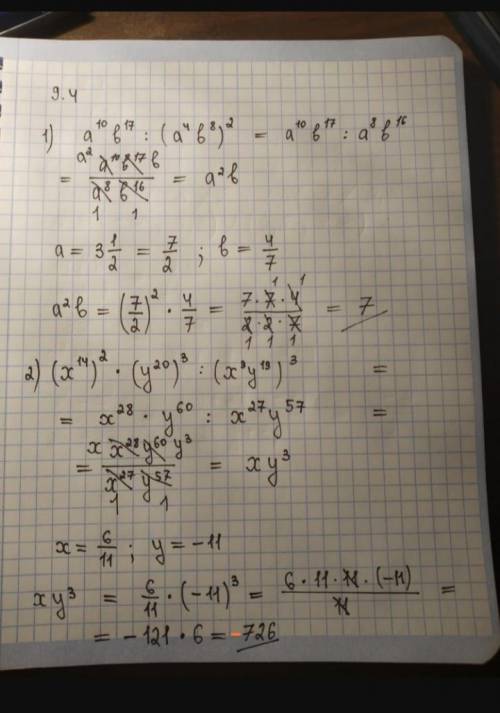 9.4
1) a¹⁰b¹⁷ : (a⁴b⁸)² = a¹⁰b¹⁷ : a⁸b¹⁶
a² a¹⁰b¹⁷ b
= ―――― = a²b
a⁸ b¹⁶
1 1
a = 3 1/2 = 7/2 ; b = 4/7
1 1
a²b = (7/2)² · 4/7 = 7·7·4 / 2·2·7 = 7
1 1 1
2) (x¹⁴)² · (y²⁰)³ : (x⁹y¹⁹)³ =
= x²⁸ · y⁶⁰ : x²⁷y⁵⁷ =
x x²⁸ y⁶⁰ y³
= ―――― = xy³
x²⁷ y⁵⁷
1 1
x = 6/11 ; y = -11
xy³ = 6/11 · (-11)³ = 6·11·11·(-11) / 11 =
= -121 · 6 = -726